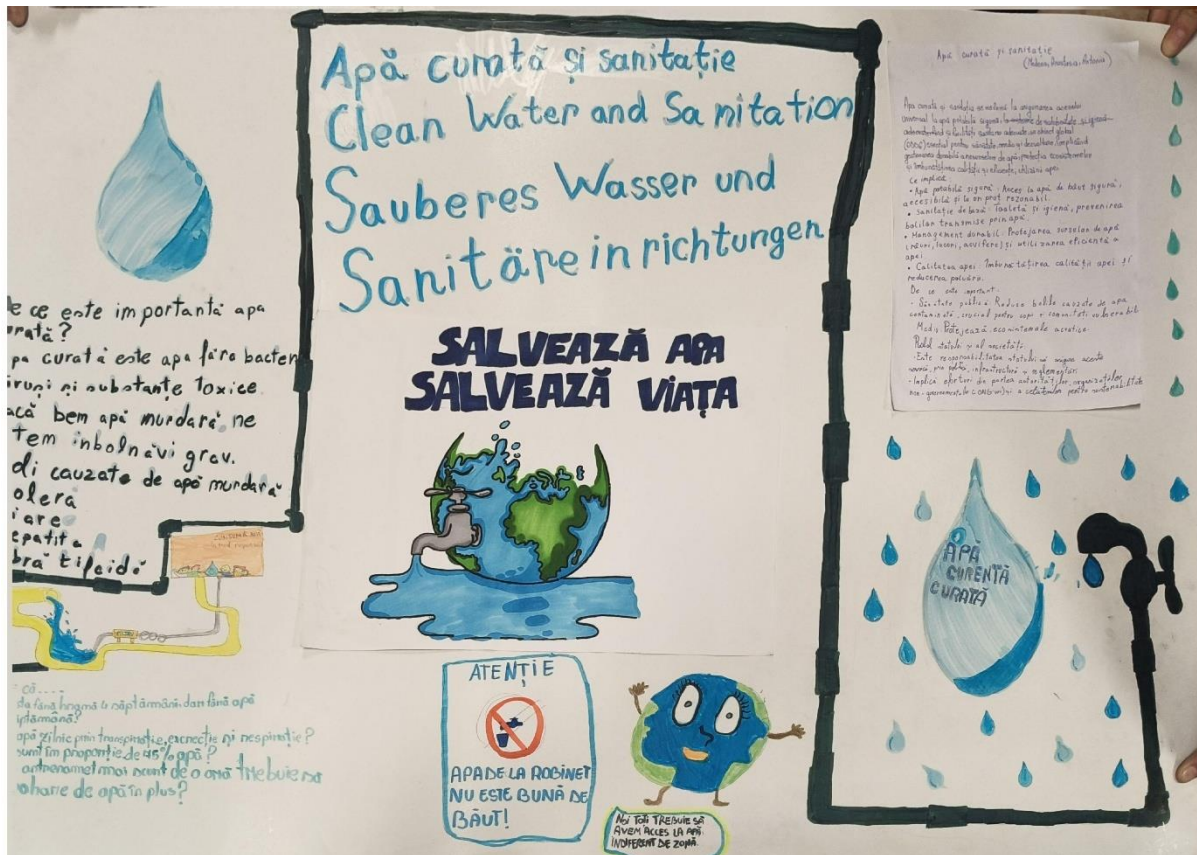 Apă curată și sanitație
Clean Water and Sanitation
Sauberes Wasser und
Sanitäreinrichtungen
SALVEAZĂ APA
SALVEAZĂ VIAȚA
e ce este importantă apa
rată?
pa curată este apa fără bacter
iruși și substanțe toxice.
acă bem apă murdară, ne
tem inbolnăvi grav.
li cauzate de apă murdară
oleră
iare
epatita
bră tifoidă
că....
fără hrană 4 săptămâni dar fără apă
ptămână?
apă zilnic prin transpirație, excreție și respirație?
sunt în proporție de 45% apă?
antrenamet mai scurt de o oră trebuie sa
oharie de apă în plus?
ATENȚIE
APA DE LA ROBINET
NU ESTE BUNĂ DE
BĂUT!
NOI TOȚI TREBUIE SĂ
AVEM ACCES LA APĂ
INDIFERENT DE ZONĂ.
Apă curată și sanitație
(Malina, Antonia)
Apa curată și sanitația se referă la asigurarea accesului
universal la apă potabilă sigură,
(ODD6) esențial pentru sănătate, mediu și dezvoltare, implicând
gestionarea durabilă a resurselor de apă, protecția ecosistemelor
și îmbunătățirea calității și eficienței utilizării apei.
Ce implică
• Apă potabilă sigură: Acces la apă de băut sigură,
accesibilă și la un preț rezonabil.
• Sanitație de bază: Toaletă și igienă, prevenirea
bolilor transmise prin apă.
• Management durabil: Protejarea surselor de apă
(râuri, lacuri, acvifere) și utilizarea eficientă a
apei
• Calitatea apei: Îmbunătățirea calității apei și
reducerea poluării.
De ce este important
- Sănătate publică: Reduce bolile cauzate de apa
contaminată, crucial pentru copii și comunități vulnerabile
Mediu: Protejează ecosistemele acvatice.
Rolul statului și al societății:
- Este responsabilitatea statului să asigure aceste
servicii, prin politici, infrastructură și reglementări
- Implică eforturi din partea autorităților, organizațiilor
non-guvernamentale și a cetățenilor pentru sustenabilitate
APĂ
CURENTĂ
CURATĂ